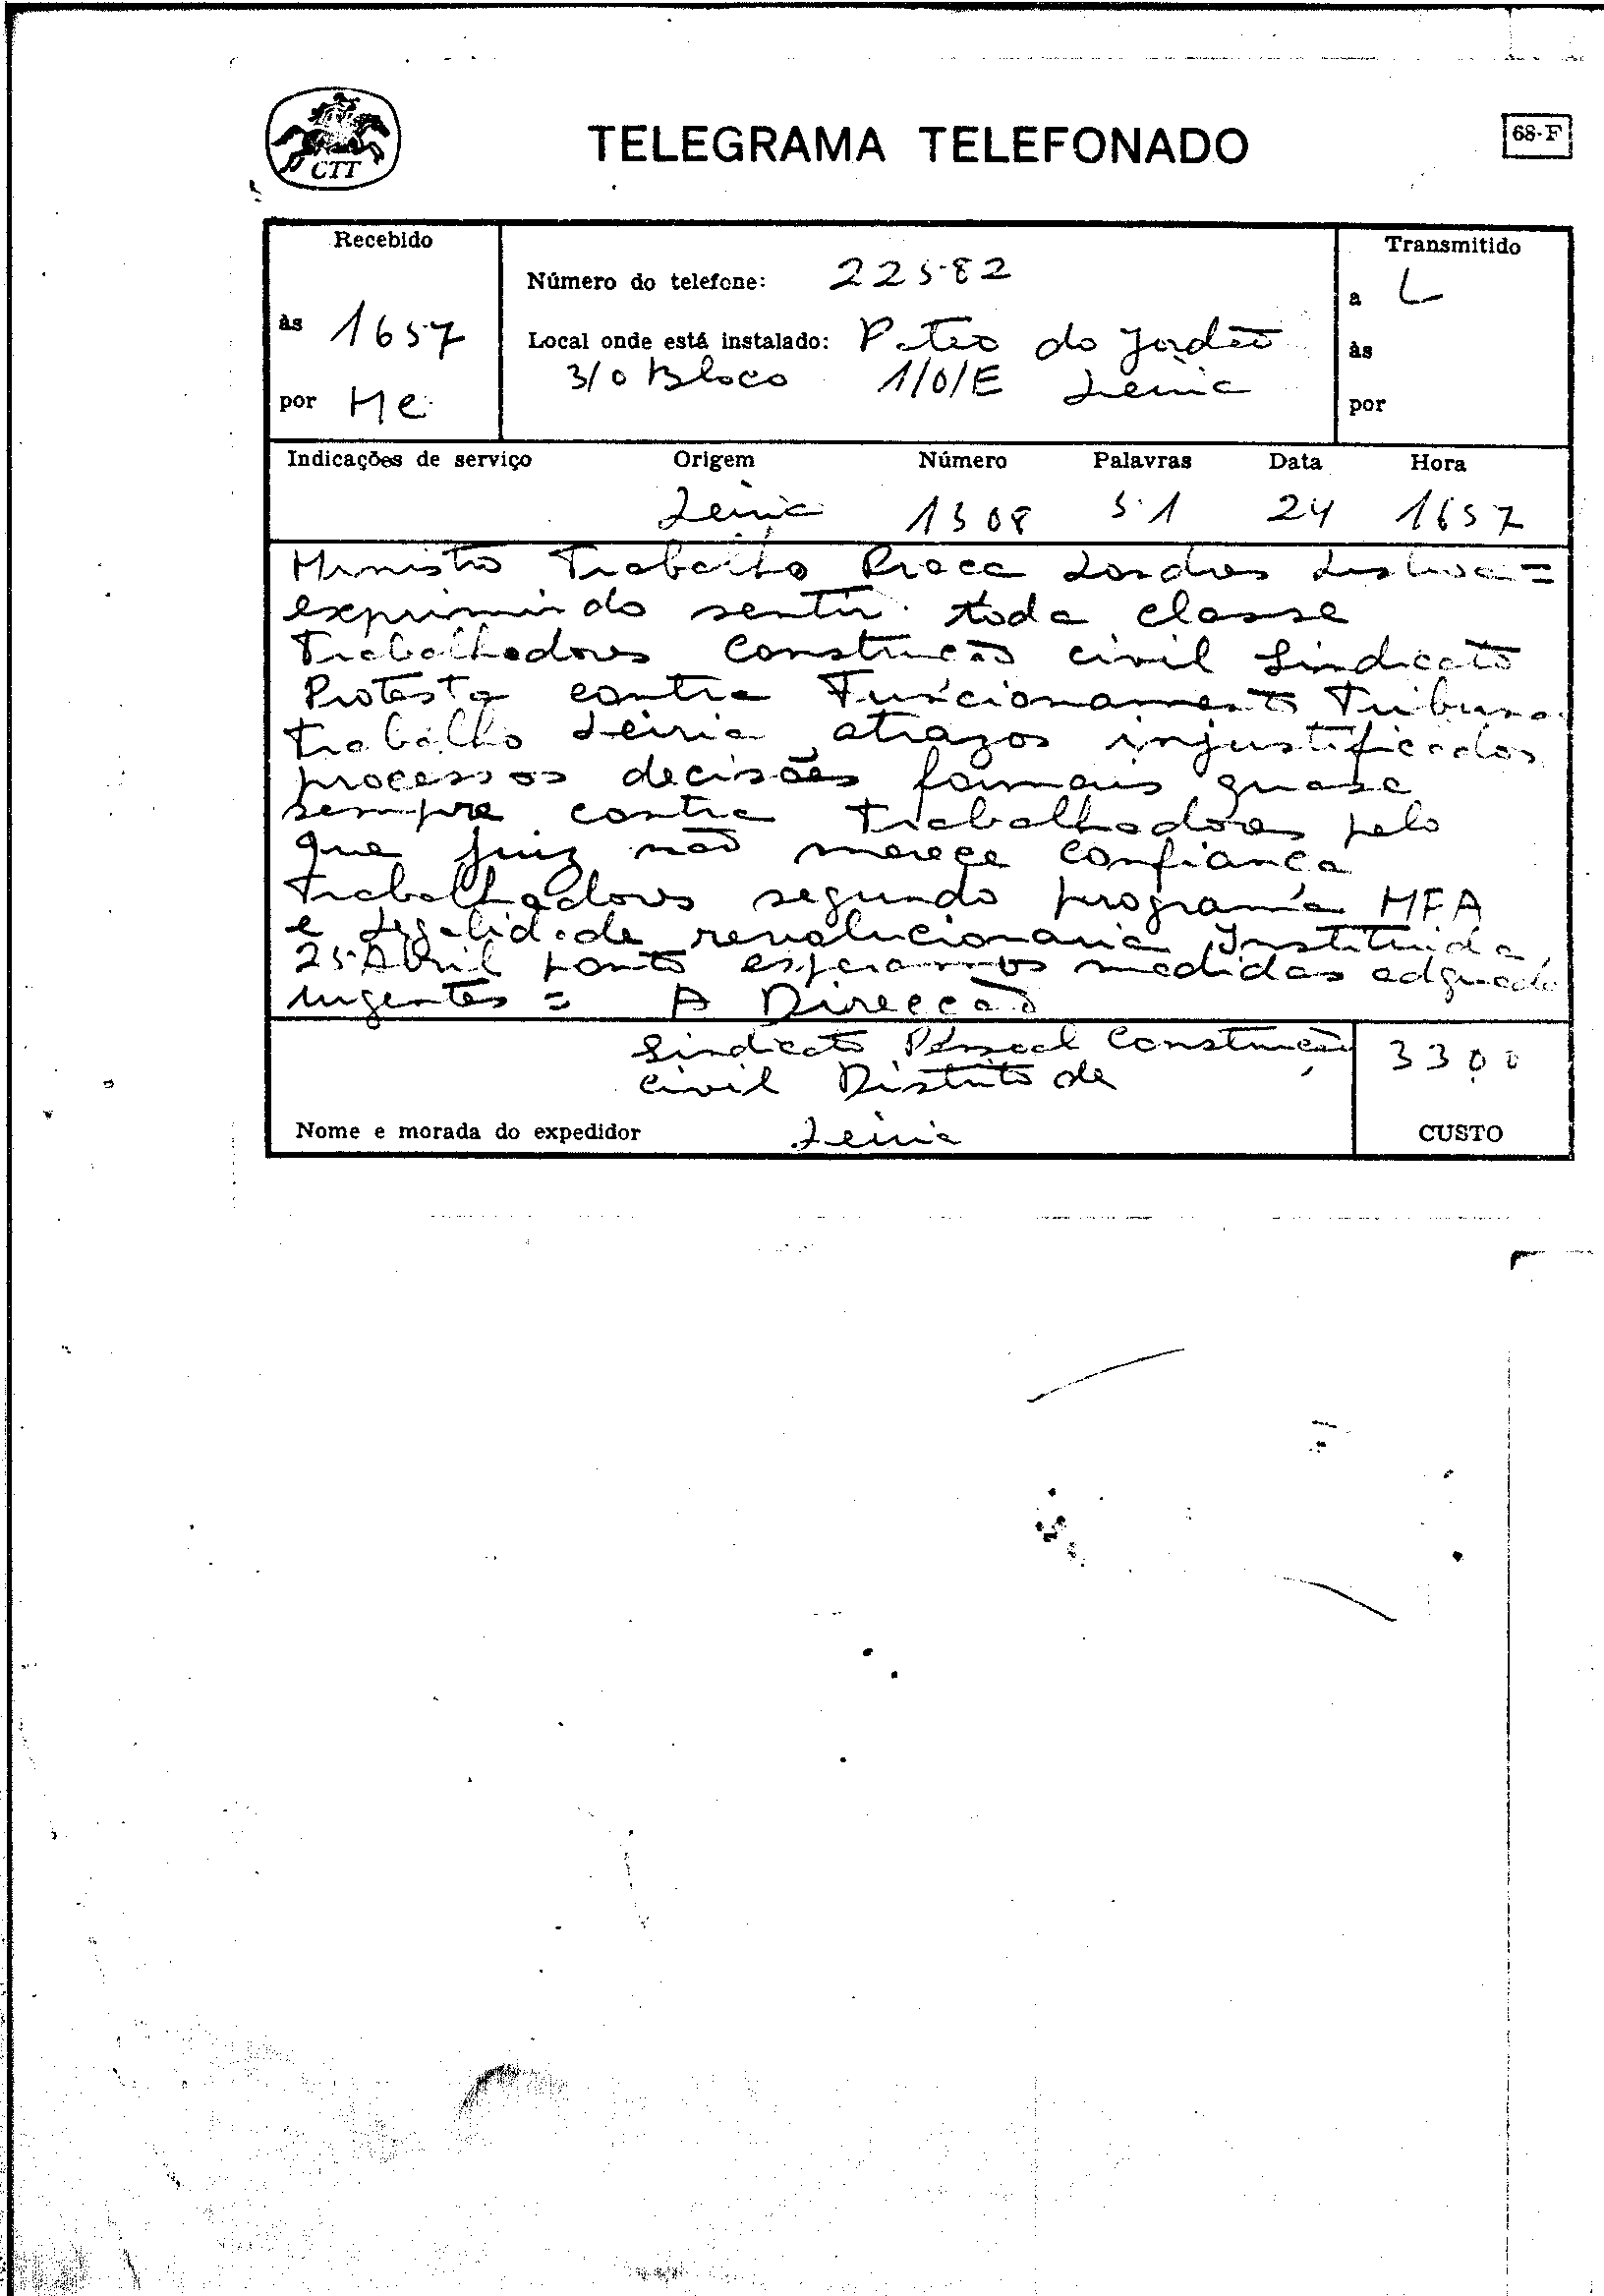 CTT
TELEGRAMA TELEFONADO
68-F
Recebido
às 1657
por Me
Número do telefone: 22582
Local onde está instalado: Pateo do Jordão
3/o Bloco 1/o/E Leiria
Transmitido
a L
às
por
Indicações de serviço Origem Número Palavras Data Hora
Leiria 1308 51 24 1657
Ministro Trabalho Praca Londres Lisboa =
exprimindo sentir toda classe
Trabalhadores Construção civil Sindicato
Protesta contra Funcionamento Tribunal
Trabalho Leiria atrazos injustificados
processos decisões formais quase
sempre contra Trabalhadores pelo
que juiz não merece confianca
Trabalhadores segundo programa MFA
e Legalidade revolucionaria Instituida
25 Abril ponto esperamos medidas
urgentes = A Direcção
Sindicato Pessoal Construção
civil Distrito de
Leiria
Nome e morada do expedidor
3300
CUSTO